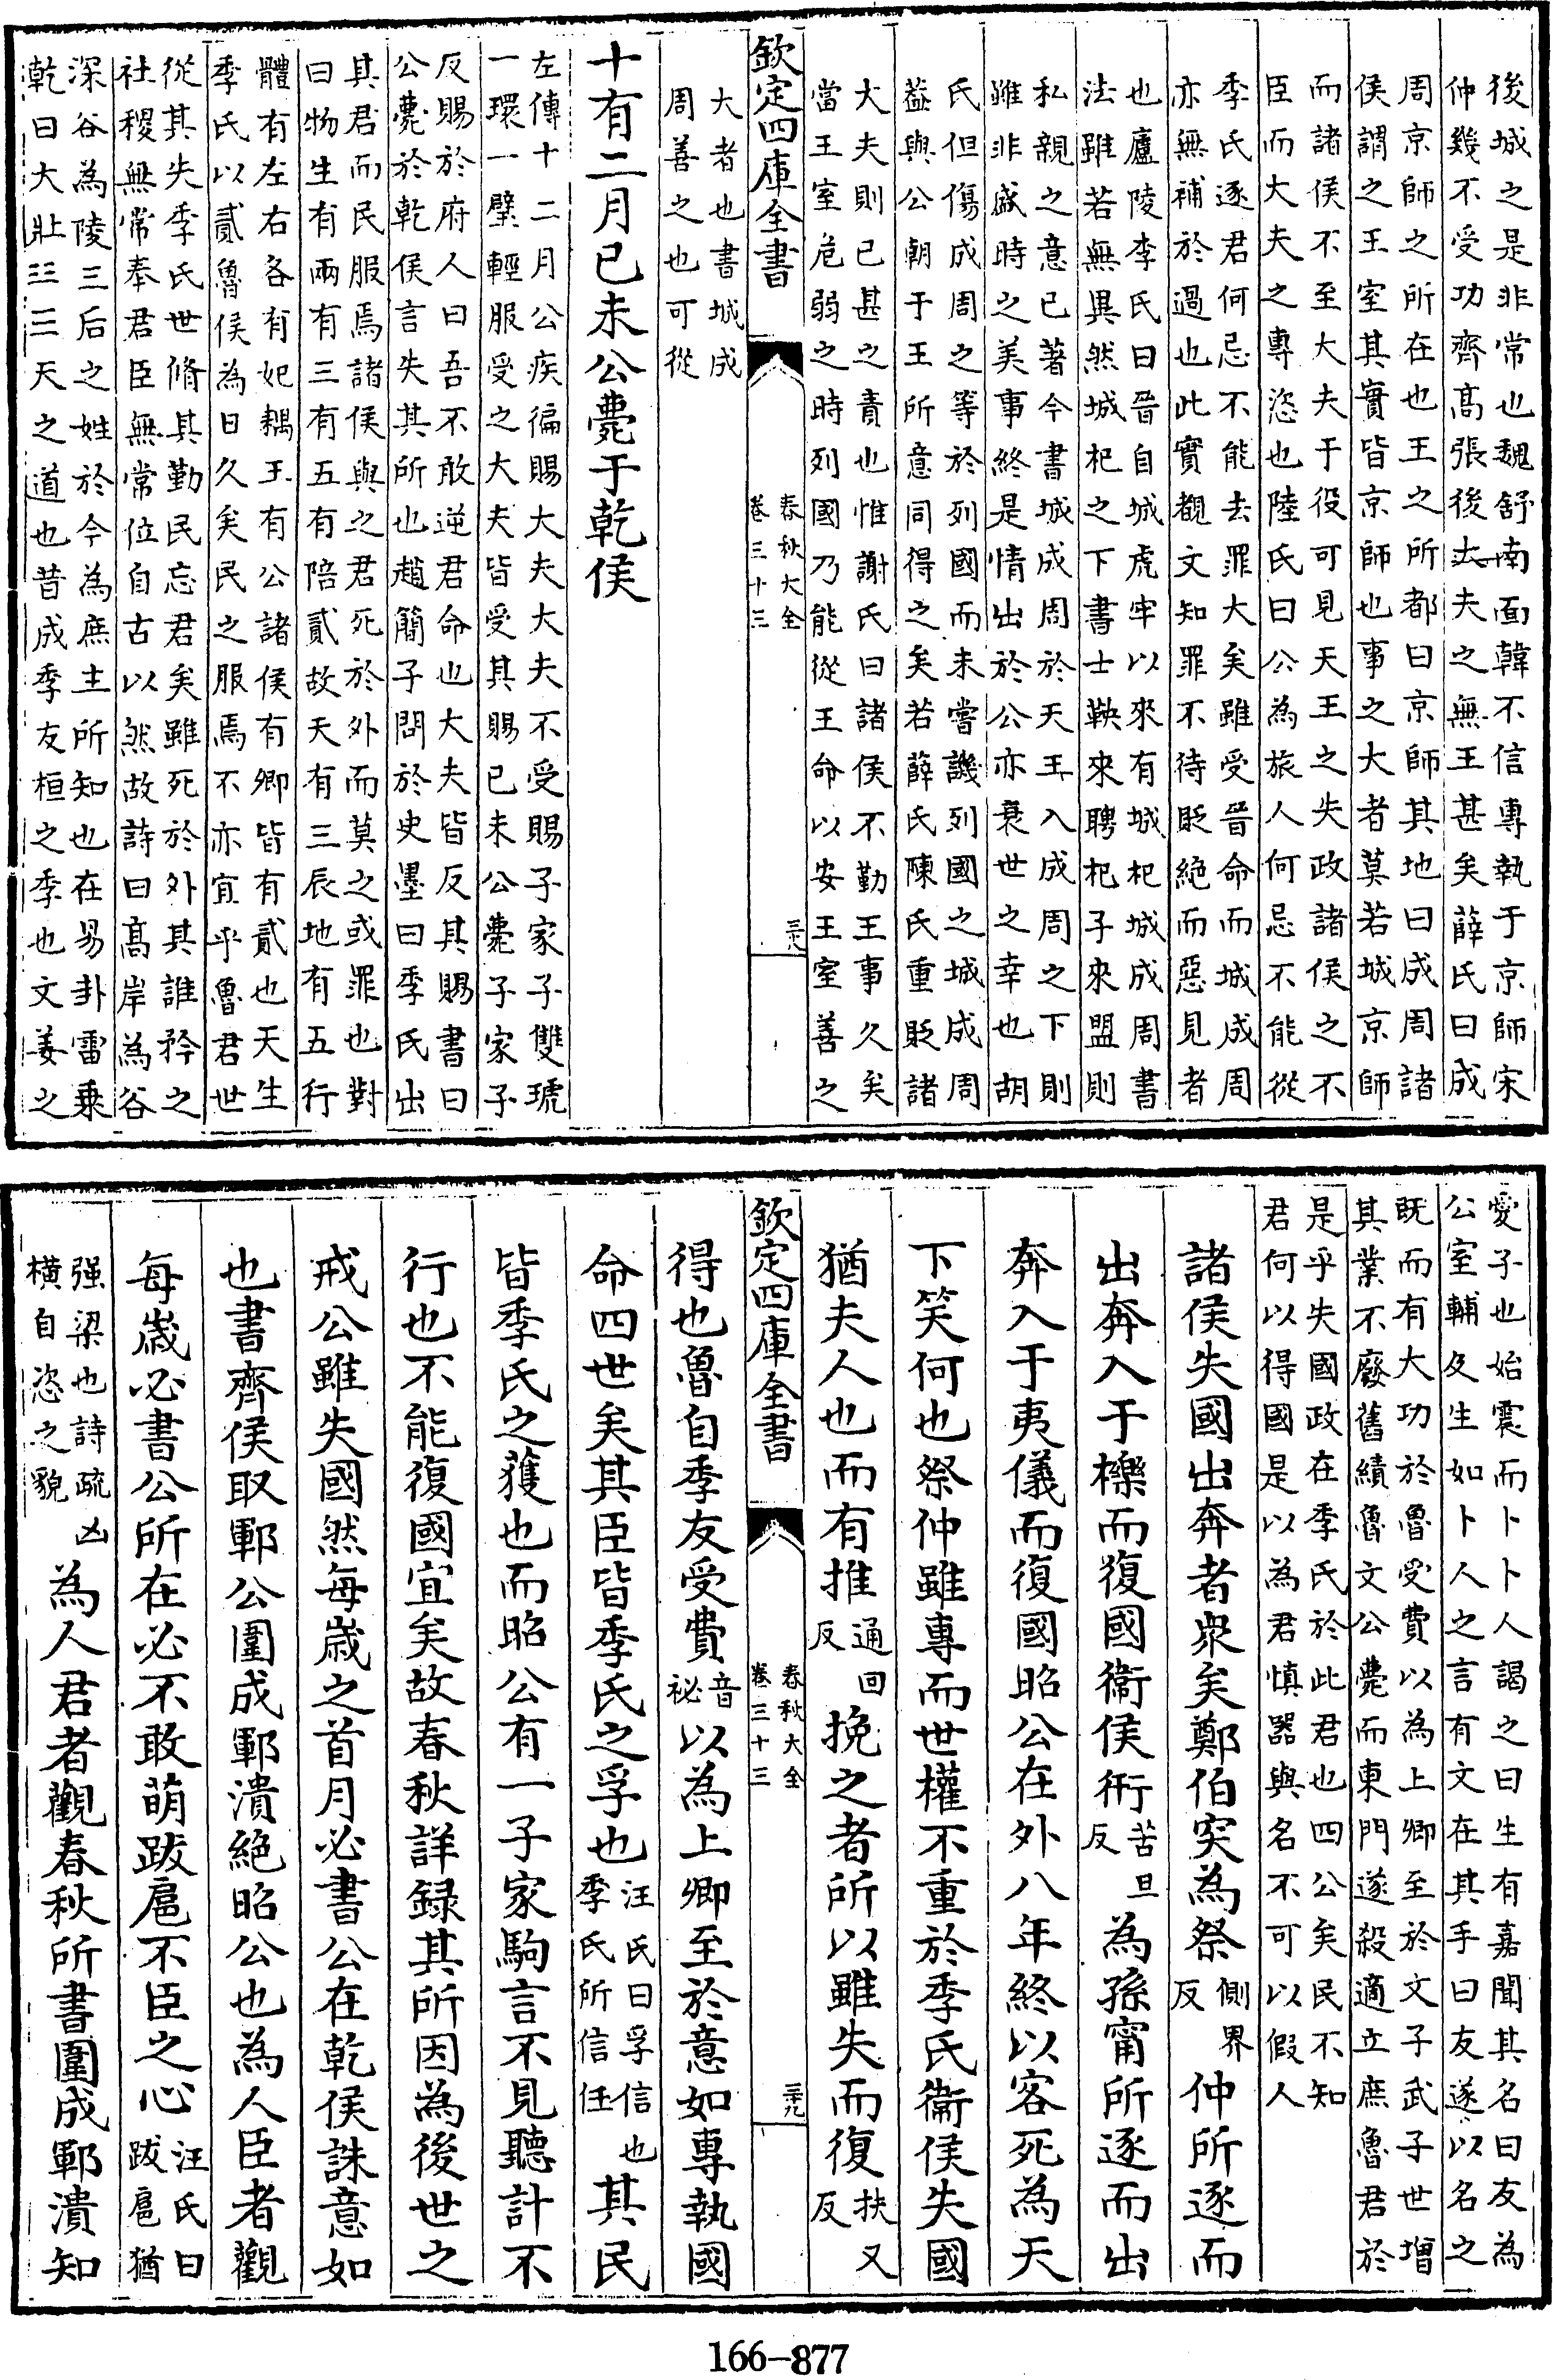 後城之是非常也魏舒南面韓不信專執于京師宋
仲幾不受功齊高張後大夫之無王甚矣薛氏曰成
周京師之所在也王之所都曰京師其地曰成周諸
侯謂之王室其實皆京師也事之大者莫若城京師
而諸侯不至大夫于役可見天王之失政諸侯之不
臣而大夫之專恣也陸氏曰公為旅人何忌不能從
季氏逐君何忌不能去罪大矣雖受晉命而城成周
亦無補於過也此實覩文知罪不待貶絶而惡見者
也廬陵李氏曰晉自城虎牢以來有城杞城成周書
法雖若無異然城杞之下書士鞅來聘杞子來盟則
私親之意已著今書城成周於天王入成周之下則
雖非盛時之美事終是情出於公亦衰世之幸也胡
氏但傷成周之等於列國而未嘗譏列國之城成周
葢與公朝于王所意同得之矣若薛氏陳氏重貶諸
大夫則已甚之責也惟謝氏曰諸侯不勤王事久矣
當王室危弱之時列國乃能從王命以安王室善之
欽定四庫全書
春秋大全
卷三十三
三十八
大者也書城成
周善之也可從
十有二月已未公薨于乾侯
左傳十二月公疾徧賜大夫大夫不受賜子家子雙琥
一環一璧輕服受之大夫皆受其賜已未公薨子家子
反賜於府人曰吾不敢逆君命也大夫皆反其賜書曰
公薨於乾侯言失其所也趙簡子問於史墨曰季氏出
其君而民服焉諸侯與之君死於外而莫之或罪也對
曰物生有兩有三有五有陪貳故天有三辰地有五行
體有左右各有妃耦王有公諸侯有卿皆有貳也天生
季氏以貳魯侯為日久矣民之服焉不亦宜乎魯君世
從其失季氏世脩其勤民忘君矣雖死於外其誰矜之
社稷無常奉君臣無常位自古以然故詩曰高岸為谷
深谷為陵三后之姓於今為庶主所知也在易卦雷乗
乾曰大壯☳☰天之道也昔成季友桓之季也文姜之
愛子也始震而卜卜人謁之曰生有嘉聞其名曰友為
公室輔及生如卜人之言有文在其手曰友遂以名之
既而有大功於魯受費以為上卿至於文子武子世增
其業不廢舊績魯文公薨而東門遂殺適立庶魯君於
是乎失國政在季氏於此君也四公矣民不知
君何以得國是以為君慎器與名不可以假人
諸侯失國出奔者衆矣鄭伯突為祭側界反仲所逐而
出奔入于櫟而復國衞侯衎苦旦反為孫甯所逐而出
奔入于夷儀而復國昭公在外八年終以客死為天
下笑何也祭仲雖專而世權不重於季氏衞侯失國
猶夫人也而有推通回反挽之者所以雖失而復扶又反
欽定四庫全書
春秋大全
卷三十三
三十九
得也魯自季友受費音祕以為上卿至於意如專執國
命四世矣其臣皆季氏之孚也汪氏曰孚信也季氏所信任其民
皆季氏之獲也而昭公有一子家駒言不見聽計不
行也不能復國宜矣故春秋詳録其所因為後世之
戒公雖失國然每歲之首月必書公在乾侯誅意如
也書齊侯取鄆公圍成鄆潰絶昭公也為人臣者觀
每歲必書公所在必不敢萌跋扈不臣之心汪氏曰跋扈猶
强梁也詩疏凶橫自恣之貌為人君者觀春秋所書圍成鄆潰知
166-877